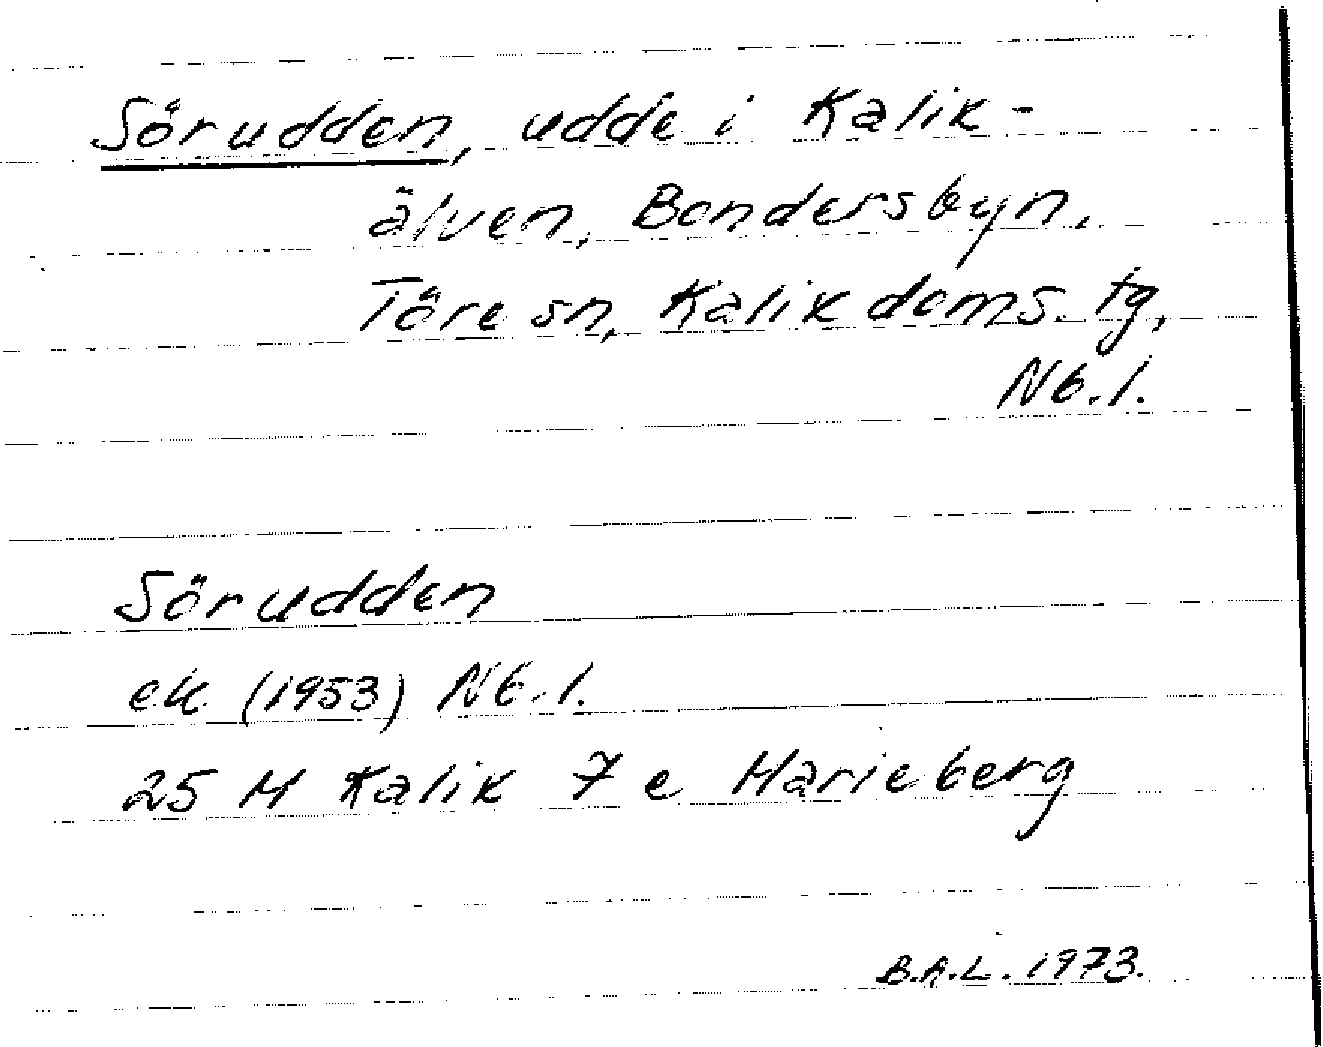 Sörudden, udde i Kalix-
älven, Bondersbyn,
Töre sn, Kalix doms. tg,
Nb. l.
Sörudden
ek (1953) Nb. l.
25 M Kalix 7 e Marieberg
B.A.L. 1973.